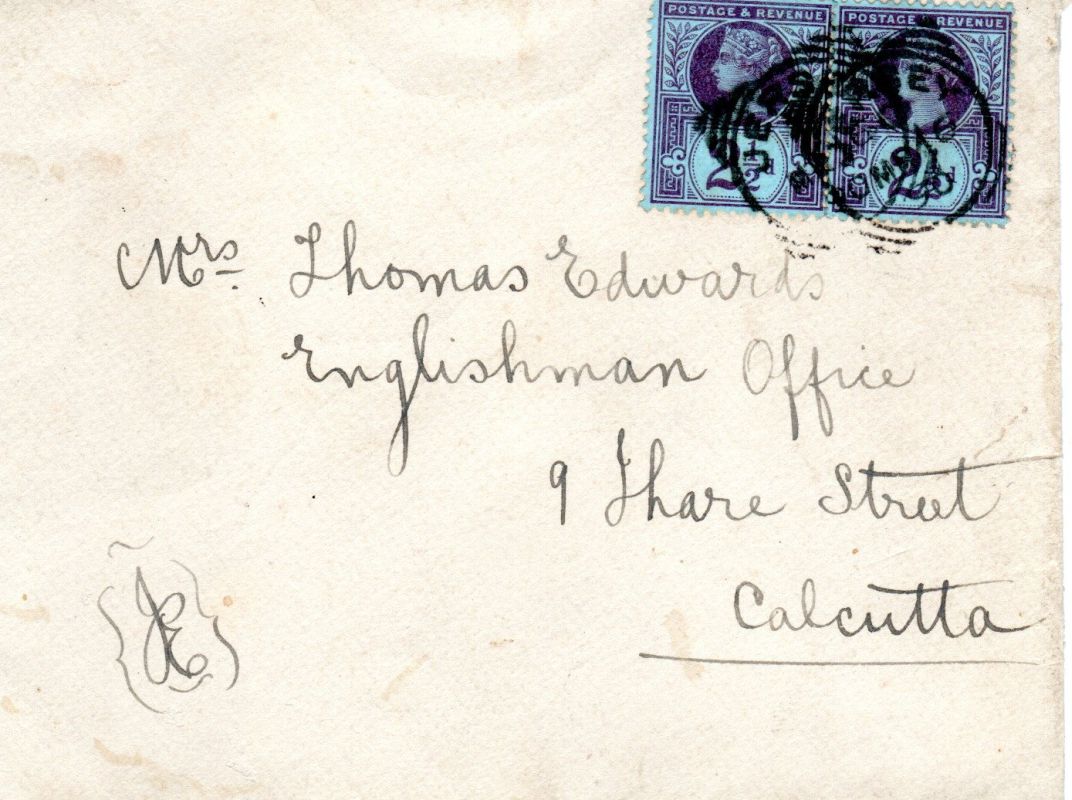 POSTAGE & REVENUE POSTAGE & REVENUE
2½d 2½d
JERSEY
Mrs Thomas Edwards
Englishman Office
9 Thare Street
Calcutta